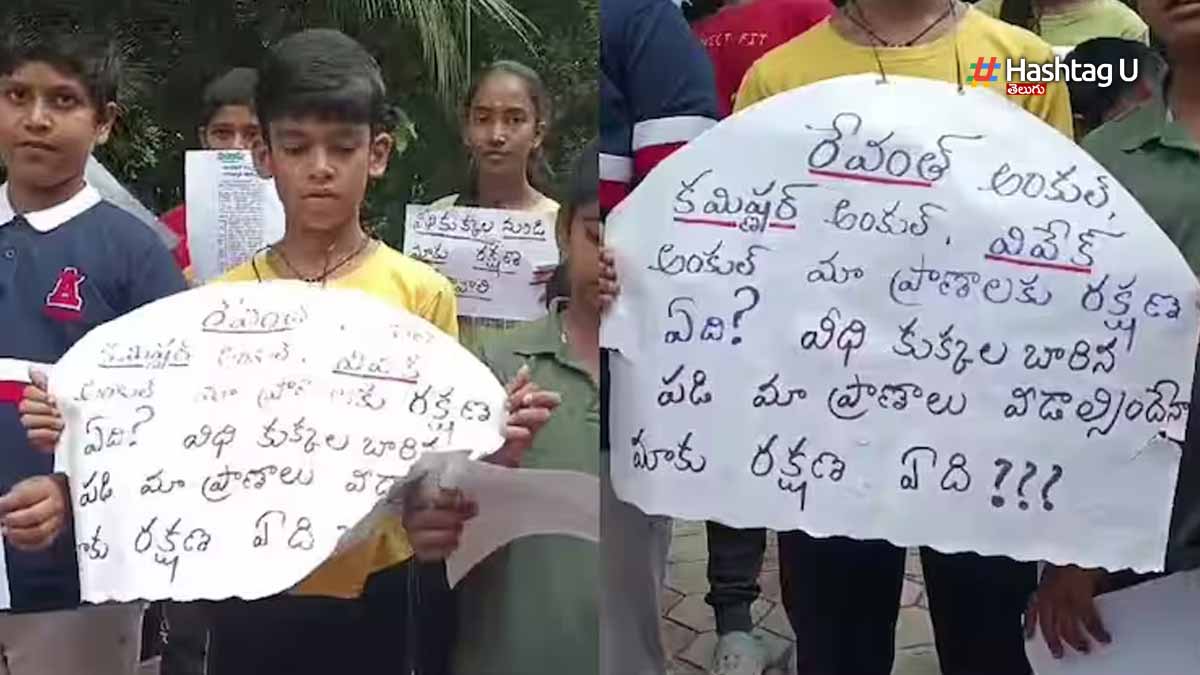 రేవంత్ అంకుల్,
కమిష్నర్ అంకుల్, వివేక్
అంకుల్ మా ప్రాణాలకు రక్షణ
ఏది? వీధి కుక్కల బారిన
పడి మా ప్రాణాలు వీడాల్సిందేనా
మాకు రక్షణ ఏది ???
రేవంత్
కమిష్నర్ అంకుల్, వివేక్
అంకుల్ మా ప్రాణాలకు రక్షణ
ఏది? వీధి కుక్కల బారిన
పడి మా ప్రాణాలు
మాకు రక్షణ ఏది ?
వీధికుక్కల నుండి
మాకు రక్షణ
# Hashtag U
తెలుగు
A